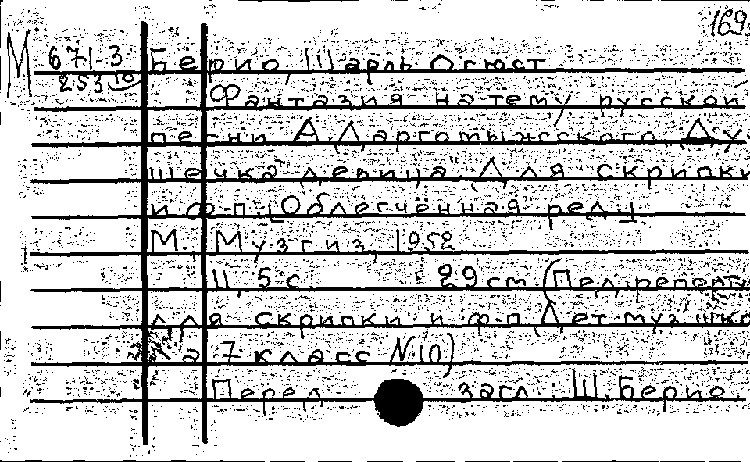 169
М 671-3 Берио, Шарль Огюст
253 10 Фантазия на тему русской
песни А. Даргомыжского "Ду
шечка девица". Для скрипки
и ф-п. [Облегчённая ред.]
М., Музгиз, 1952
11, 5 с. 29 см. (Пед. реперту
для скрипки и ф-п. Дет. муз. шко
а 7 класс №10)
Перед загл.: Ш. Берио.